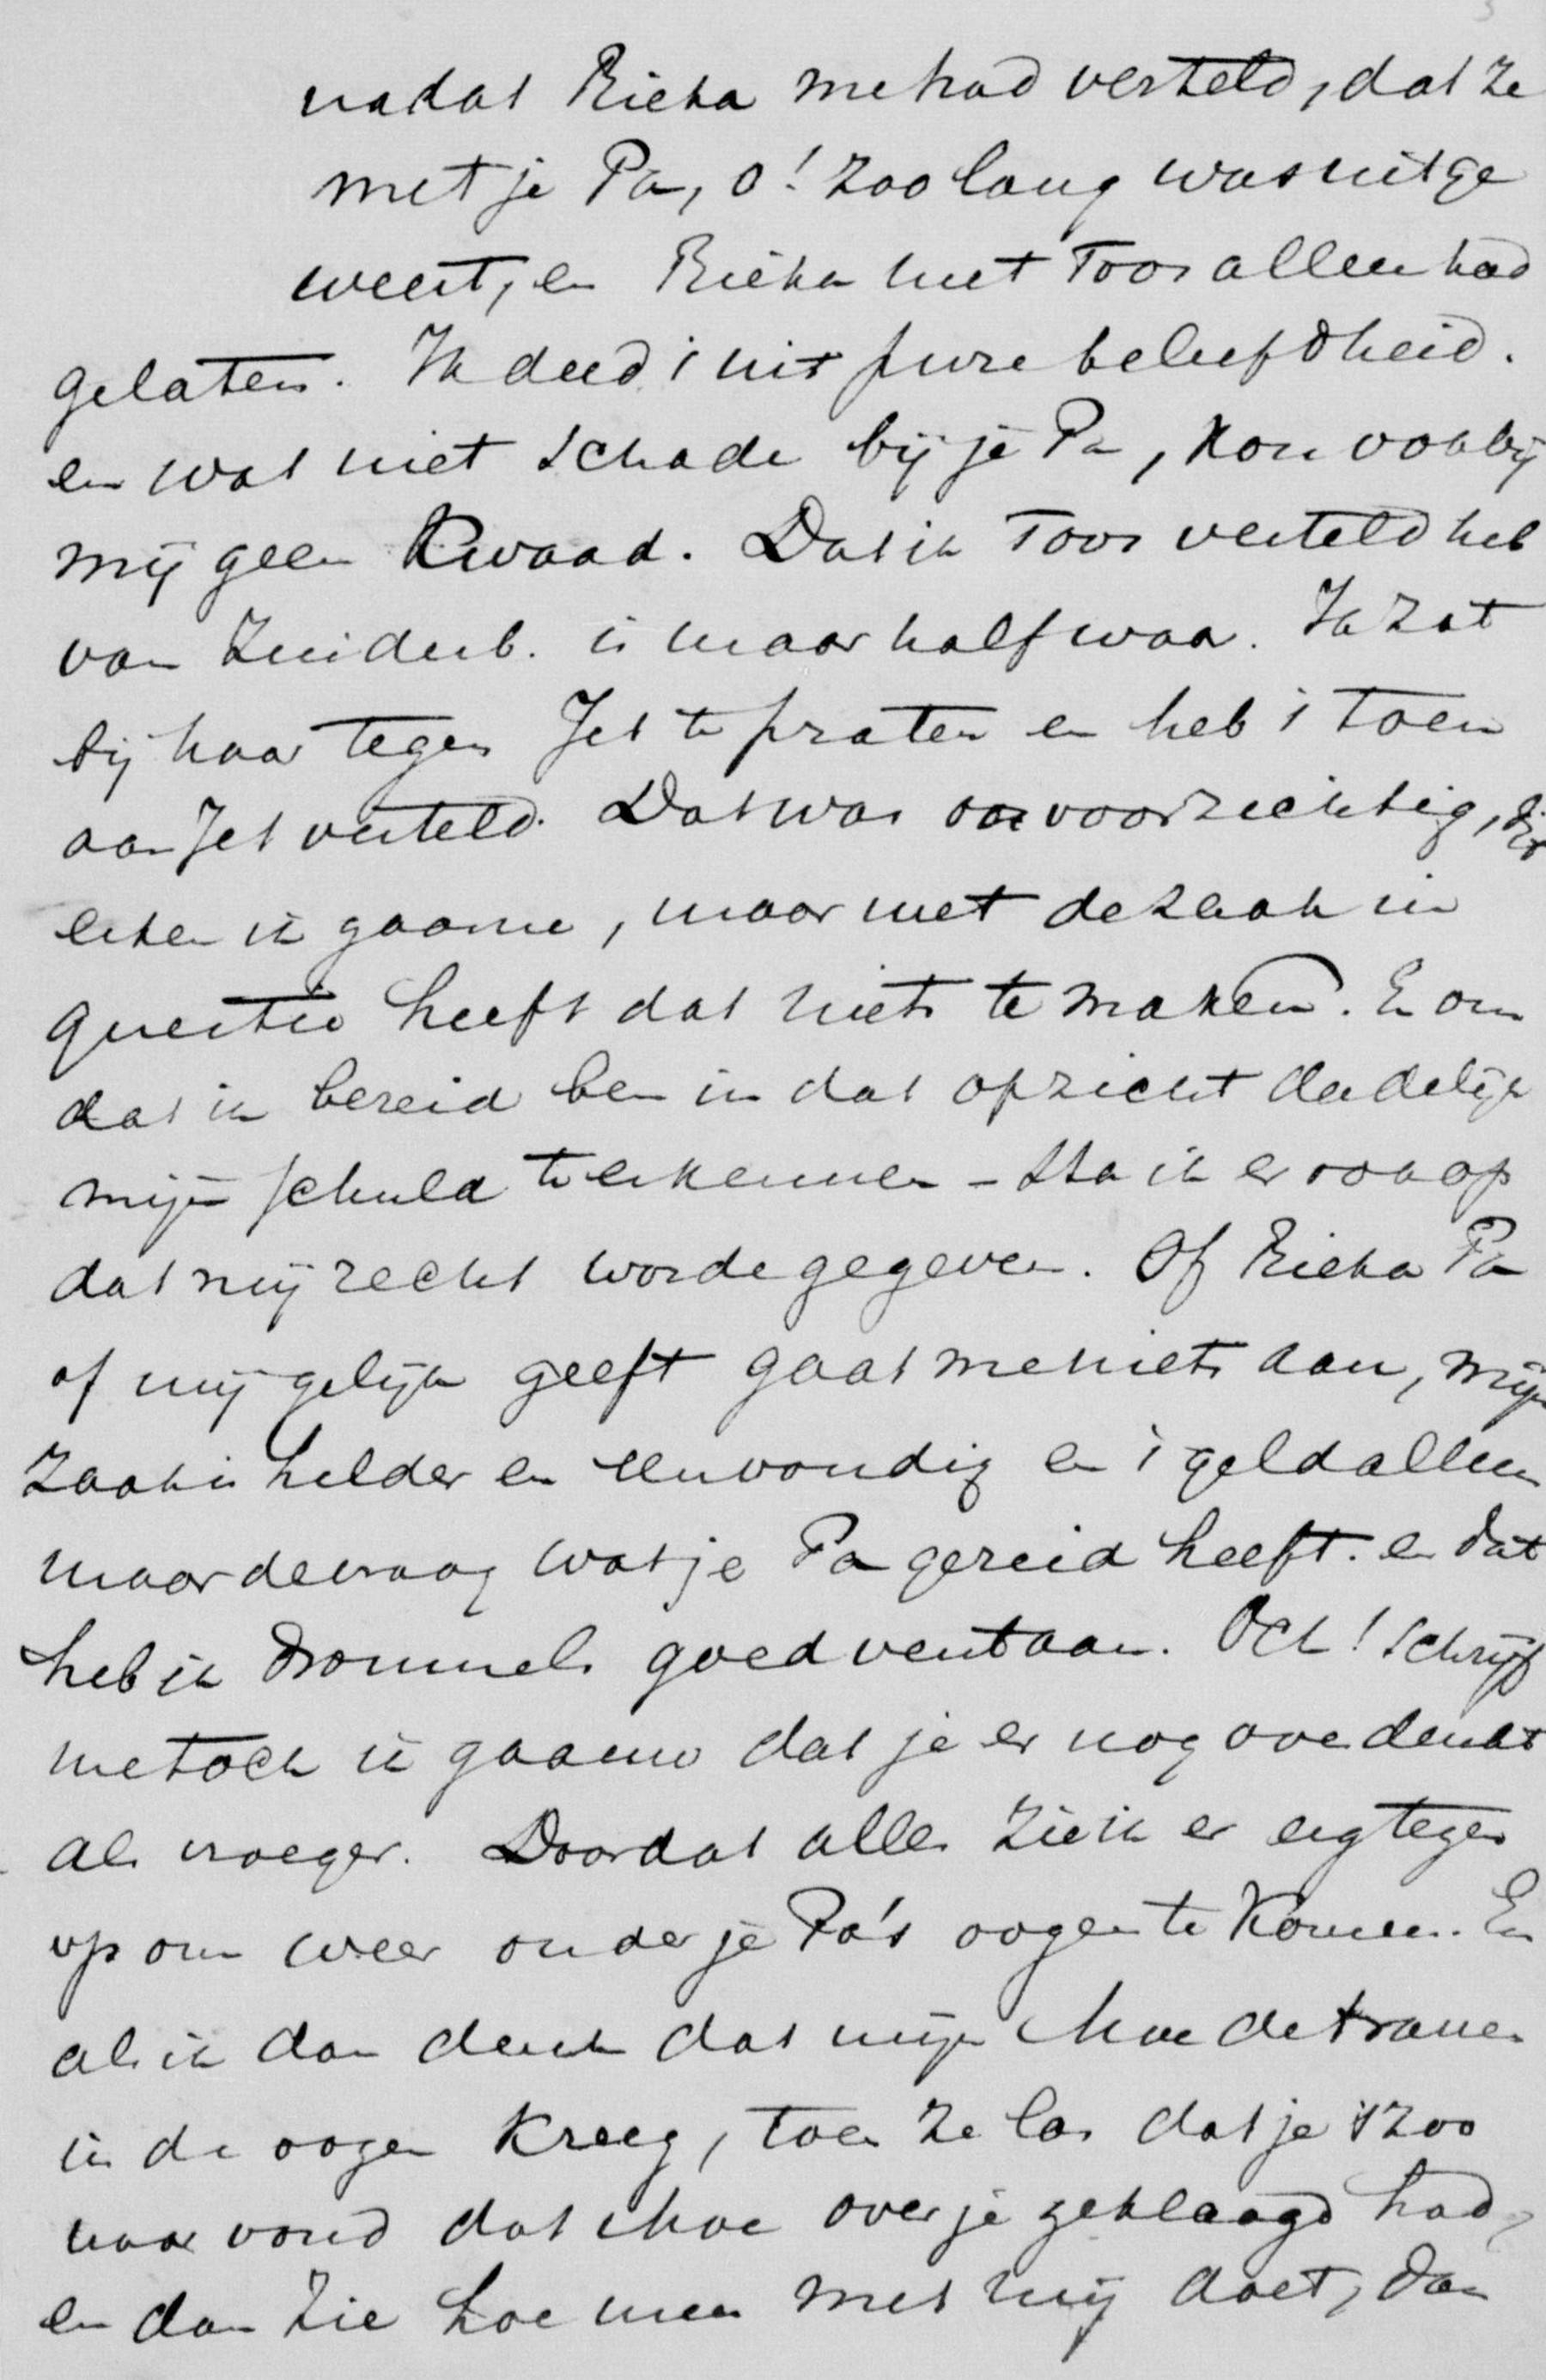 nadat Rieka me had verteld, dat ze
met je Pa, o! zoo lang was uitge
weest, en Rieka met Toos alleen had
gelaten. Ik deed 't uit pure beleefdheid.
en wat niet schade bij je Pa, kon ook bij
mij geen kwaad. Dat ik Toos verteld heb
van Zuiderb. is maar half waar. Ik zat
bij haar tegen Jet te praten en heb 't toen
aan Jet verteld. Dat was onvoorzichtig, dit
erken ik gaarne, maar met de zaak in
questie heeft dat niets te maken. En om
dat ik bereid ben in dat opzicht dadelijk
mijn schuld te erkennen – sta ik er ook op
dat mij recht worde gegeven. Of Rieka Pa
of mij gelijk geeft gaat me niets aan, mijn
zaak is helder en eenvoudig en 't geld alleen
maar de vraag wat je Pa gezeid heeft. en dat
heb ik drommels goed verstaan. Och! schrijf
me toch is gauw dat je er nog over denkt
als vroeger. Doordat alles zie ik er erg tegen
op om weer onder je Pa's oogen te komen. En
als ik dan denk dat mijn Moe de tranen
in de oogen kreeg, toen ze las dat je 't zoo
naar vond dat Moe over je geklaagd had,
en dan zie hoe men met mij doet, dan